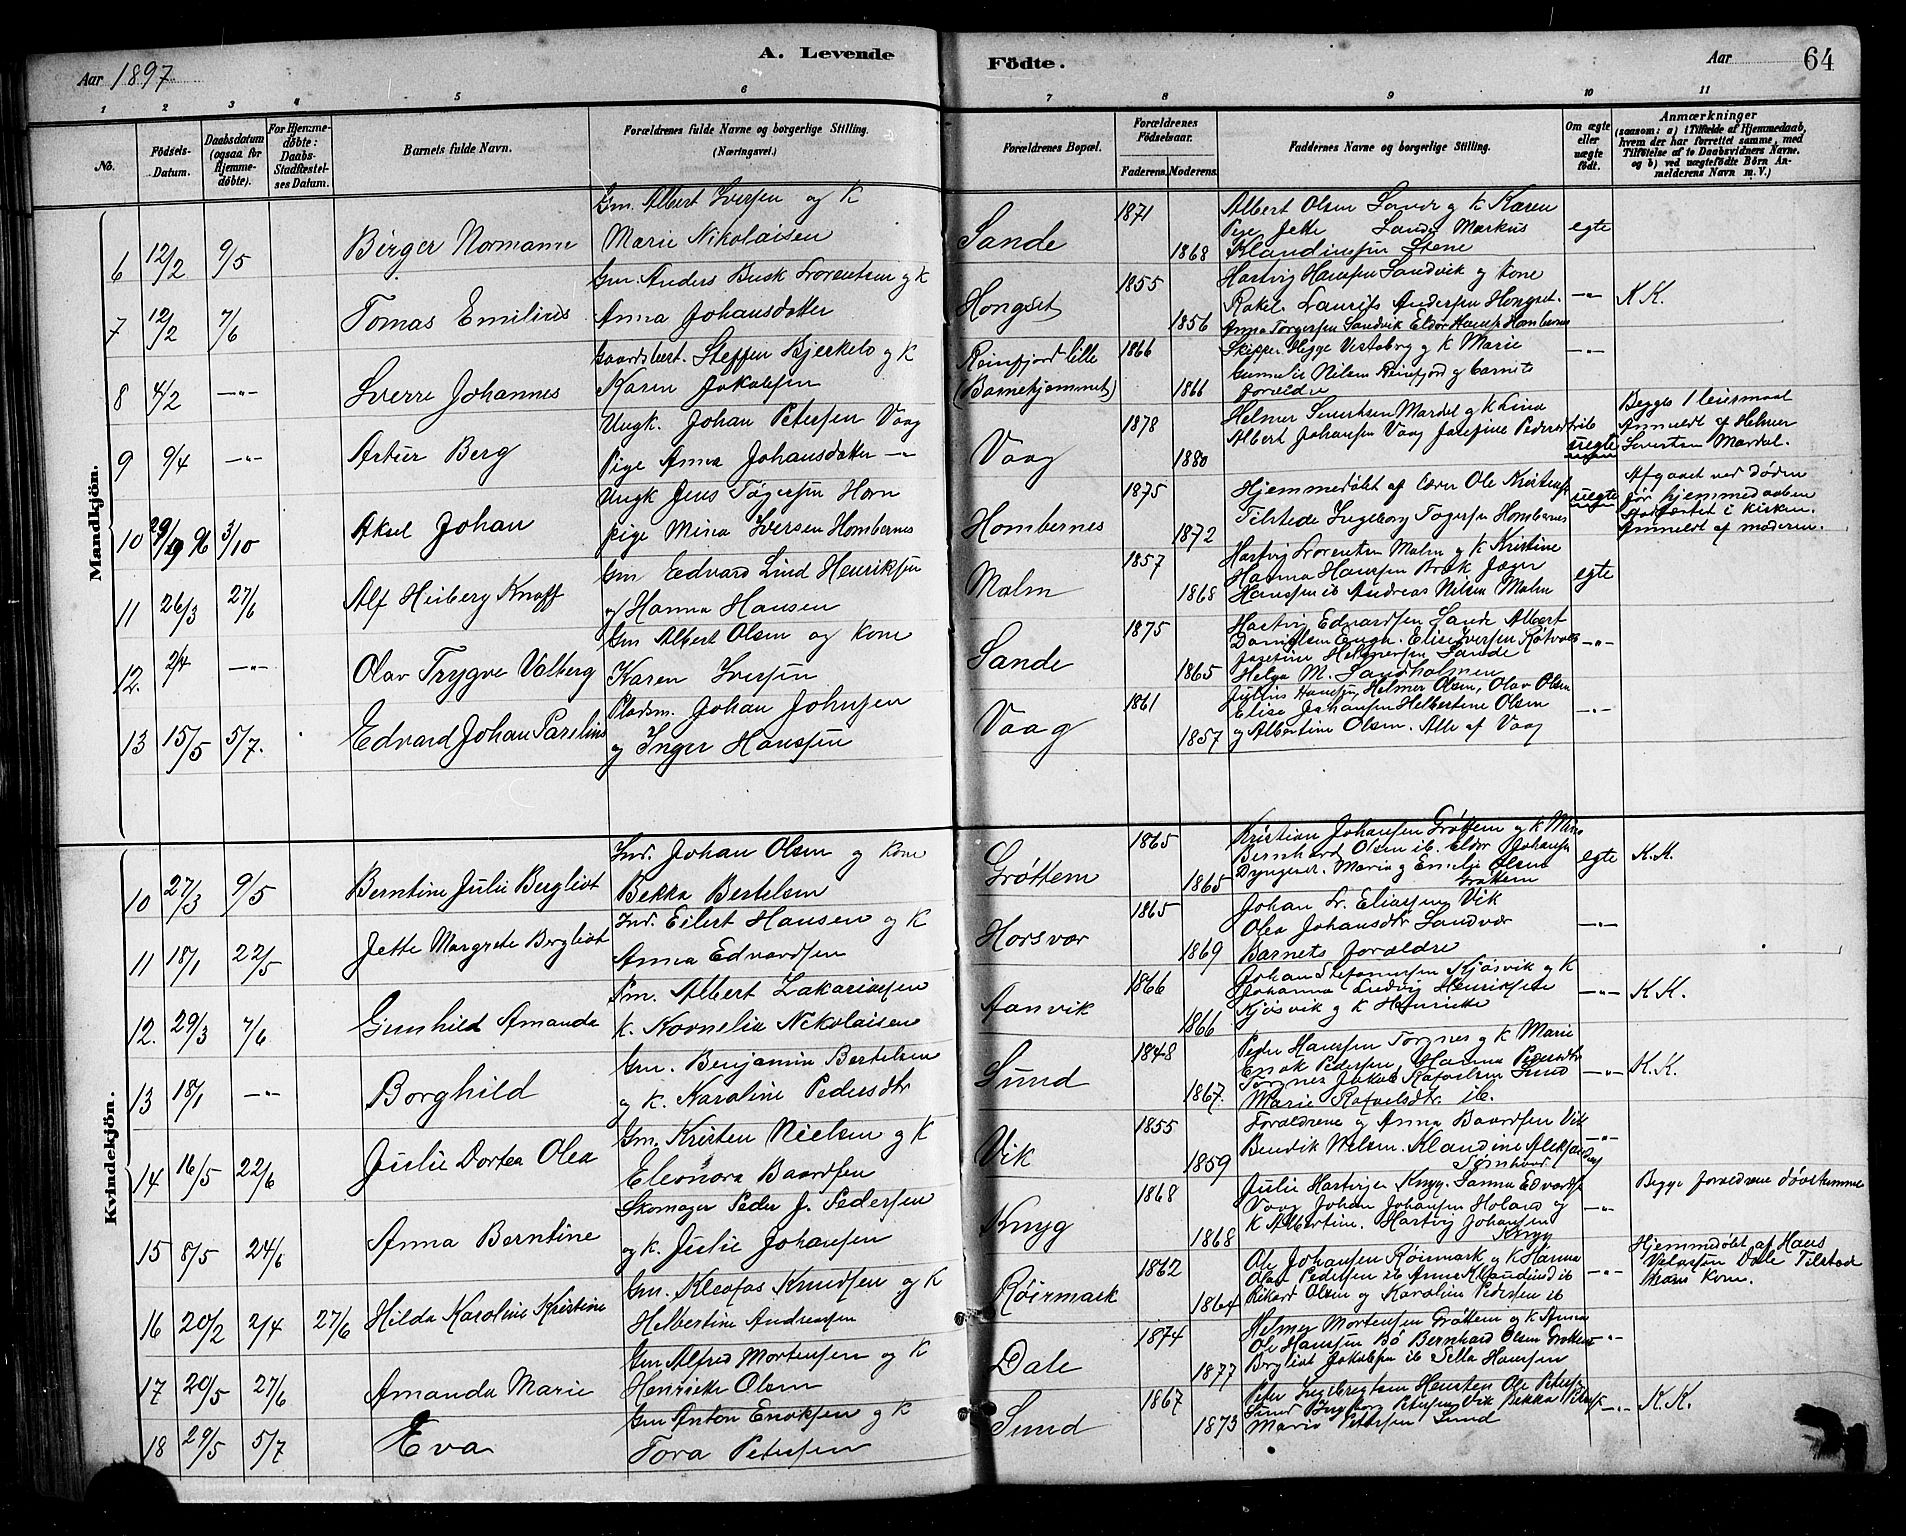 Aar 1897
A. Levende
Födte.
Aar
64
1 2 3 4 5 6 7 8 9 10 11
No.
Födsels-Datum.
Daabsdatum (ogsaa for Hjemmedöbte).
For Hjemmedöbte: Daabs-Stadfæstelses Datum.
Barnets fulde Navn.
Forældrenes fulde Navne og borgerlige Stilling. (Næringsvei.)
Forældrenes Bopæl.
Forældrenes Födselsaar.
Faderens. Moderens.
Faddernes Navne og borgerlige Stilling.
Om ægte eller uægte født.
Anmærkninger
(saasom: a) i Tilfælde af Hjemmedaab, hvem der har forrettet samme, med Tilföielse af to Daabsvidners Navne. og b) ved uægtefödte Börn Anmelderens Navn m. V.)
Mandkjön.
6 12/2 9/5 Birger Normann
Gm. Albert Iversen og K
Marie Nikolaisen
Sande 1871 1868
Albert Olsen Sande og k Karen
Pige Jette Sande Markus
Klaudiussen Stene
egte
7 12/2 7/6 Tomas Emilius
Gm. Anders Busk Lorentsen og K
Anna Johansdatter
Hongset 1855 1856
Hartvig Hanssen Sandvik og kone
Rakel. Laurits Andersen Hongset.
Anna Torgersen Sandvik Eldor Hanssen Hombernes
-"- K K.
8 4/2 -"- Sverre Johannes
Gaardbest. Steffen Bjerkelo og K
Karen Jakobsen
Reinfjord lille
(Barnehjemmet)
1866 1866
Skipper Vigge Vestaberg og k Marie
Gunnelie Nilsen Reinfjord og barnets
forældre
-"-
9 9/4 -"- Artur Berg
Ungk. Johan Petersen Vaag
Pige Anna Johansdatter -"-
Vaag 1878 1880
Helmer Severtsen Mardal og k Lina
Albert Johansen Vaag Josefine Peders
uegte
Begges 1 leiermaal
Anmeldt af Helmer
Severtsen Mardal.
10 29/9 96 3/10 Aksel Johan
Ungk Jens Togersen Horn
pige Mina Iversen Hombernes
Hombernes 1875 1872
Hjemmedøbt af Lærer Ole Kristensen
Tilstede Ingeborg Togersen Hombernes
uegte
Afgaaet ved døden
før hjemmedaaben
stadfæstet i kirken.
Anmeldt af moderen.
11 26/3 27/6 Alf Heiberg Knoff
Gm Edvard Lind Henriksen
og Hanna Hansen
Malm 1857 1868
Hartvig Lorentsen Malm og k Kristine
Hanna Hanssen Bræk Jæger
Hanssen ib Andreas Nilsen Malm
egte
12. 2/4 -"- Olav Trygve Valberg
Gm Albert Olsen og kone
Karen Iversen
Sande 1875 1865
Hartvig Edvardsen Sande Albert
Danielsen Engh. Elise Iversen
Josefine Helmersen Sande
Helga M. Sandholmen
-"-
13 15/5 5/7. Edvard Johan Parelius
Pladsm. Johan Johnsen
og Inger Hanssen
Vaag 1861 1857
Julius Hanssen, Helmer Olsen, Olav Olsen
Elise Johansen Helbertine Olsen
og Albertine Olsen. Alle af Vaag
-"-
Kvindekjön.
10 27/3 9/5 Berntine Julie Bergliot
Ind. Johan Olsen og kone
Bekka Bertelsen
Grøttem 1865 1865
Kristian Johansen Grøttem og k Mina
Bernhard Olsen ib. Eldor Johansen
Dyngeset. Maria og Emelie Olsen
Grøttem
egte K.K.
11 18/1 22/5 Jette Margrete Bergliot
Ind. Eilert Hansen og K
Anna Edvardsen
Horsvær 1865 1869
Johan L. Eliassen Vik
Olea Johansdtr Sandvær
Barnets forældre
-"-
12. 29/3 7/6 Gunhild Amanda
Pm. Albert Zakariassen
k. Kornelia Nikolaisen
Aanvik 1866 1866
Johan Stefanussen Kjøsvik og K
Johanna Ludvig Henriksen
Kjøsvik og k Henriette
-"- K K.
13 18/1 -"- Borghild
Gm. Benjamin Bertelsen
og k. Karoline Pedersdtr
Sund 1848 1867.
Peder Hanssen Torgnes og k Marie
Enok Pedersen, Hanna Pedersdtr
Torgnes Jakob Rafaelsen Sund
Marie Rafaelsdtr. ib.
-"- K.K.
14 16/5 22/6 Julie Dortea Olea
Gm. Kristen Nielsen og K
Eleonora Baardsen
Vik 1855 1859
Forældrene og Anna Baardsen Vik
Bendik Nelsen. Klaudine Aleksandersen
-"-
15 8/5 24/6 Anna Berntine
Skomager Peder J. Pedersen
og k. Julie Johansen
Knyg 1868 1868
Julie Hartvigsen Knyg. Sanna Edvardsen
Vaag Johan Johansen Holand og
k Albertine. Hartvig Johansen
Knyg
-"-
Begge forældrene døvstumme
16 20/2 2/4 27/6 Hilda Karoline Kristine
Gm. Kleofas Knudsen og K
Helbertine Andreassen
Røirmark 1862 1864
Ole Johansen Røirmark og k Hanna
Olav Pedersen ib Anne Klaudius ib
Rikard Olsen og Karoline Pedersen ib
-"-
Hjemmedøbt af Hans
Dale Tilstede
kone.
17 20/5 27/6 Amanda Marie
Gm Alfred Mortensen og K
Henrikke Olsen
Dale 1874 1877
Helmer Mortensen Grøttem og k Anna
Ole Hanssen Bø Bernhard Olsen Grøttem
Bergliot Jakobsen ib Sella Hanssen
-"-
18 29/5 5/7 Eva
Gm Anton Enoksen og K
Tora Petersen
Sund 1867 1873
Peter Ingebregtsen Horsten Ole Petersen
Sund Ingeborg Petersen Vik Bekka Petersen
Maria Petersen Sund
-"- K.K.